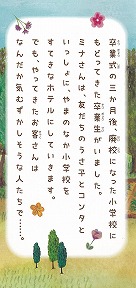 卒業式の三か月後、廃校になった小学校に
もどってきた卒業生がいました。
ミナさんは、友だちのうさ子とコンタと
いっしょに、やまのなか小学校を
すてきなホテルにしていきます。
でも、やってきたお客さんは
なんだか気むずかしそうな人たちで……。